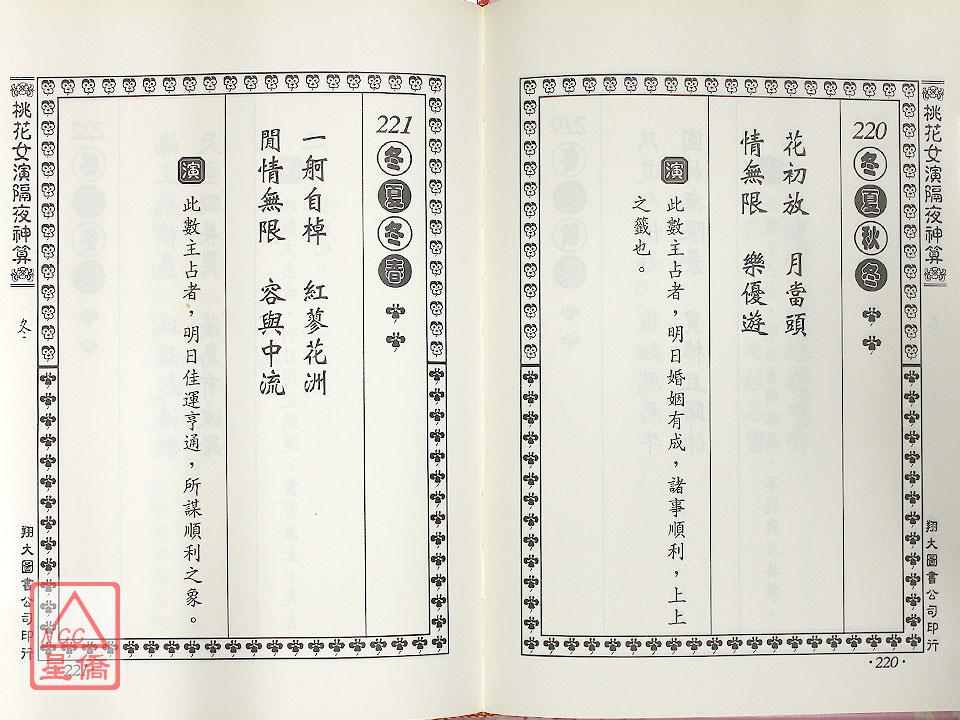 桃花女演隔夜神算
翔大圖書公司印行
220 冬夏秋冬
花初放 月當頭
情無限 樂優遊
演 此數主占者，明日婚姻有成，諸事順利，上上
之籤也。
·220·
221 冬夏冬春
一舸自棹 紅蓼花洲
閒情無限 容與中流
演 此數主占者，明日佳運亨通，所謀順利之象。
桃花女演隔夜神算
冬
翔大圖書公司印行
221
NCC
星僑